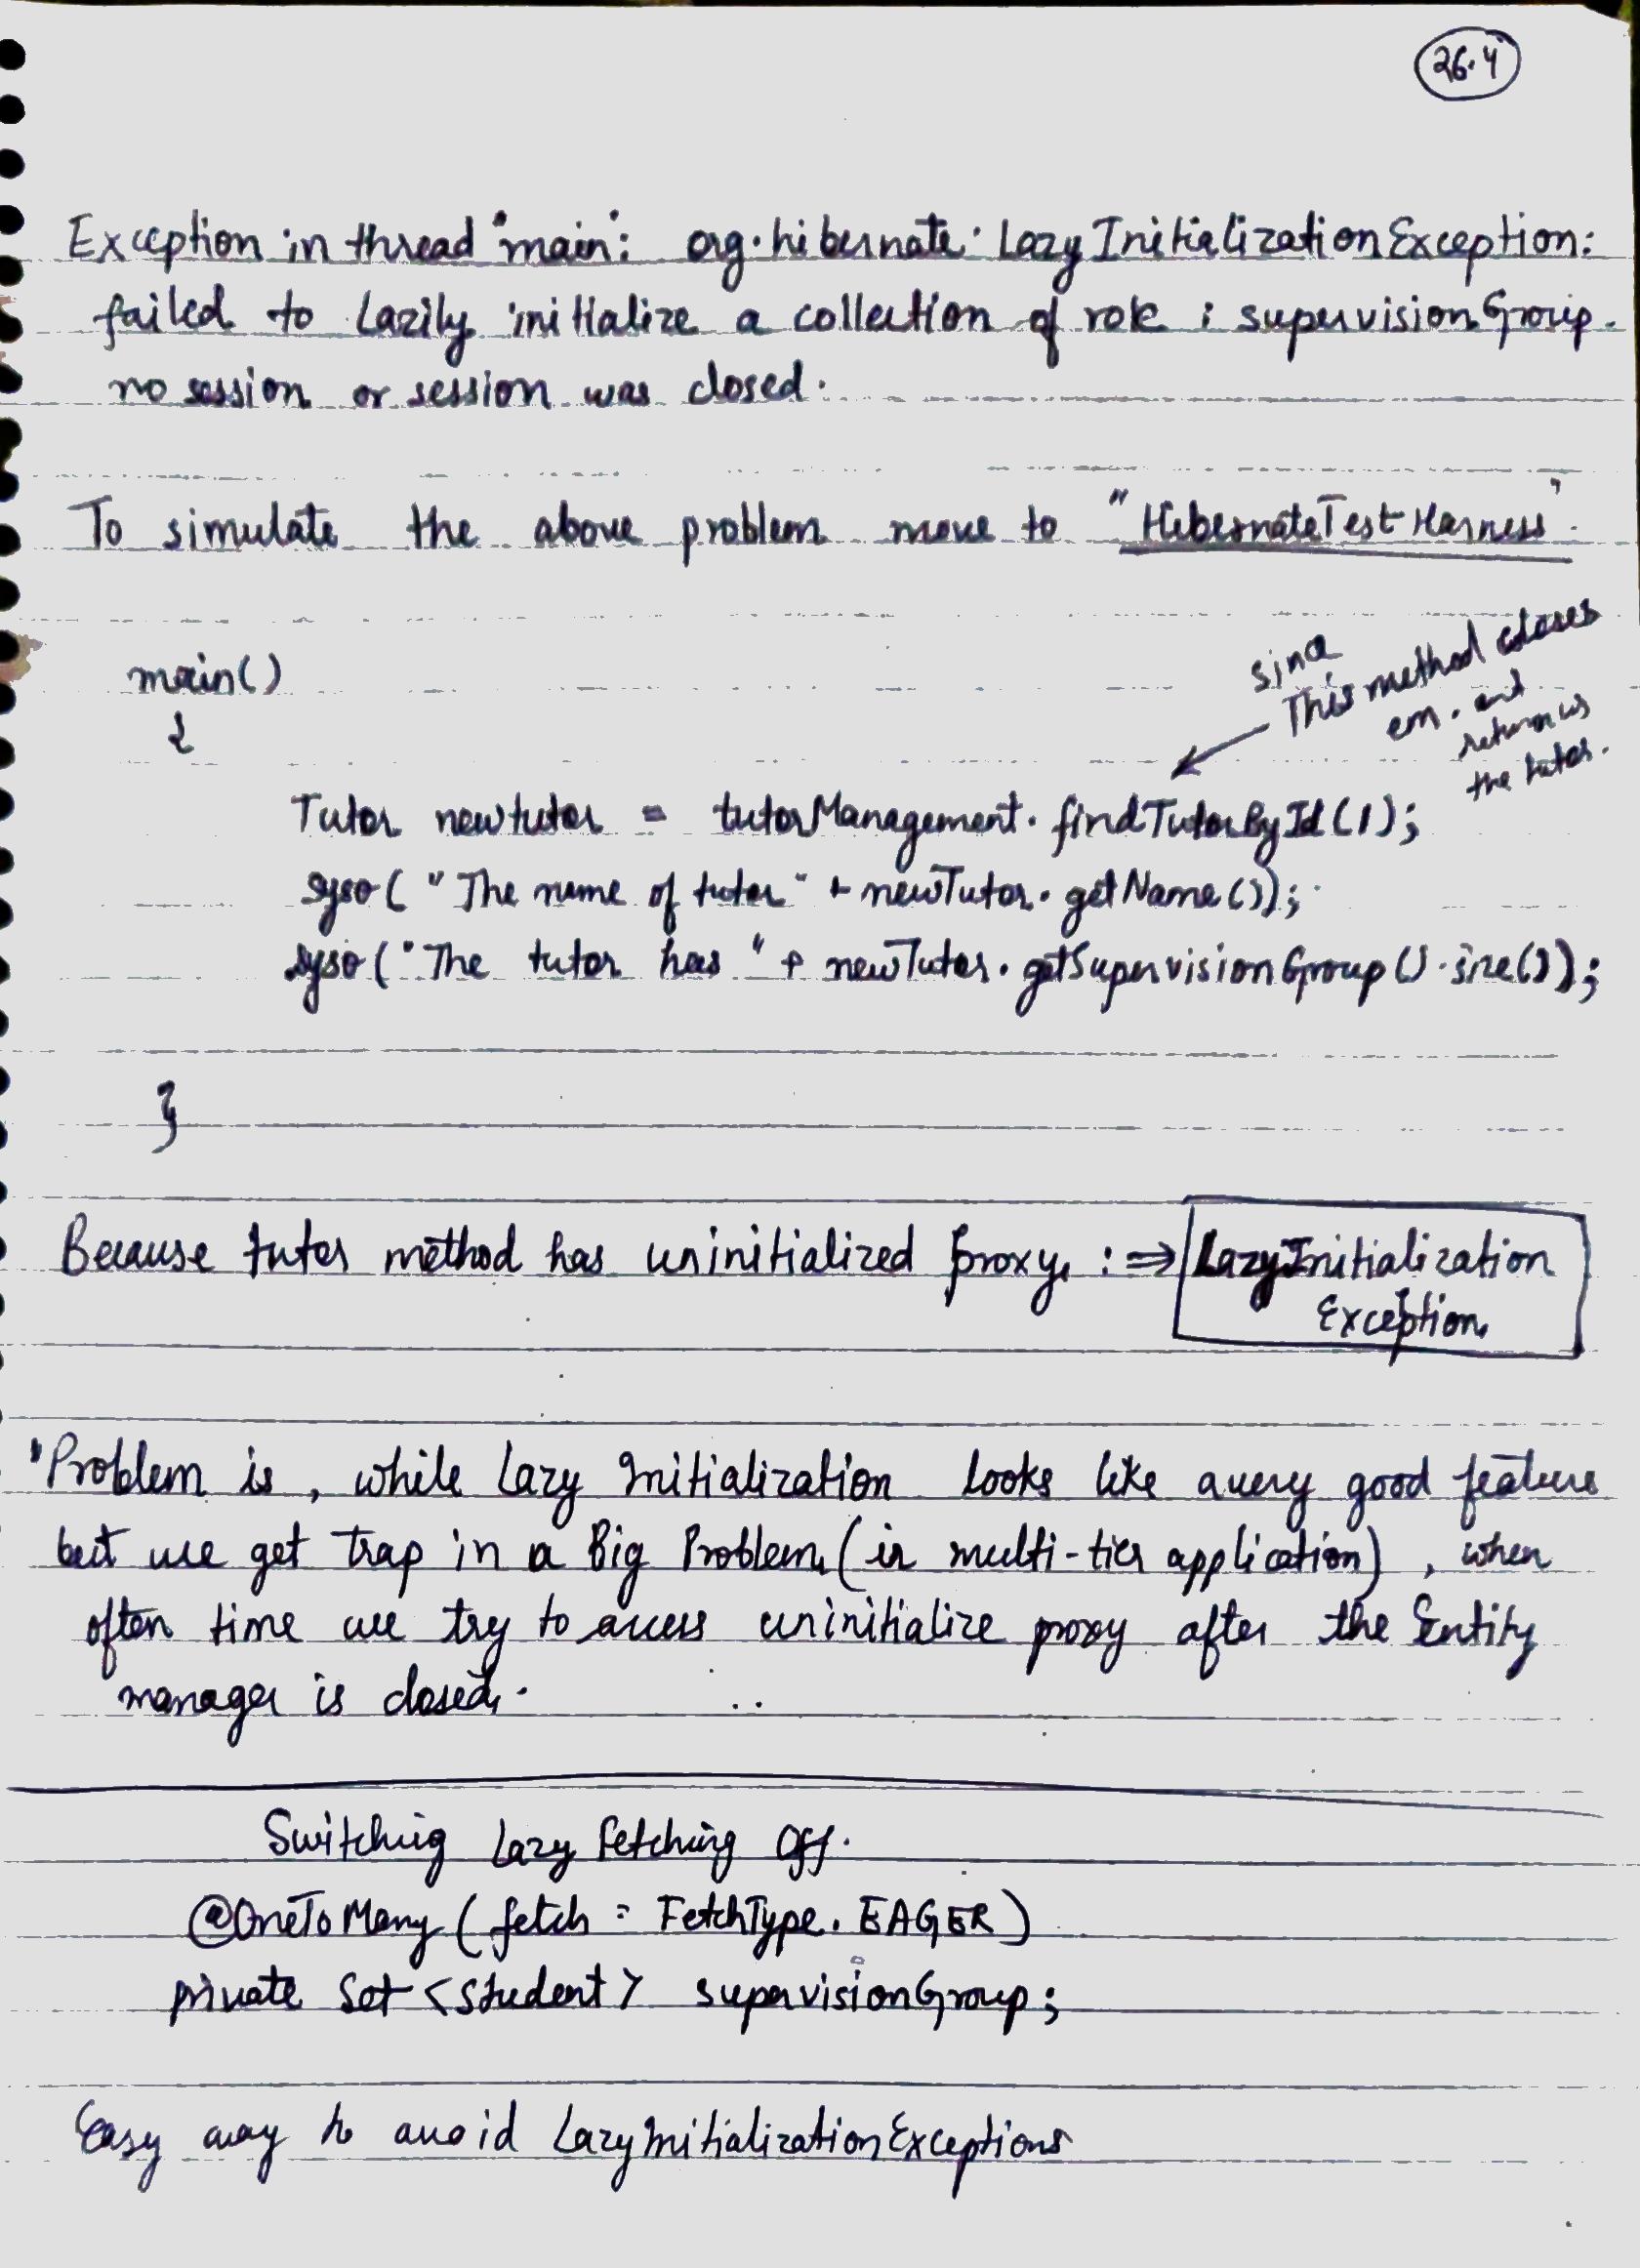 26.4
Exception in thread "main": org.hibernate.LazyInitializationException:
failed to Lazily initialize a collection of role : supervisionGroup.
no session or session was closed.
To simulate the above problem move to "HibernateTestHarness".
since
This method closes
em. and
return us
the tutor.
main()
{
Tutor newtutor = tutorManagement.findTutorById(1);
syso("The name of tutor" + newTutor.getName());
syso("The tutor has" + newTutor.getSupervisionGroup().size());
}
Because tutor method has uninitialized proxy. :⇒ LazyInitialization
Exception
"Problem is, while Lazy Initialization looks like a very good feature
but we get trap in a Big Problem (in multi-tier application), when
often time we try to access uninitialize proxy after the Entity
manager is closed.
Switching Lazy Fetching Off.
@OneToMany (fetch = FetchType.EAGER)
private Set<Student> supervisionGroup;
Easy way to avoid LazyInitializationExceptions